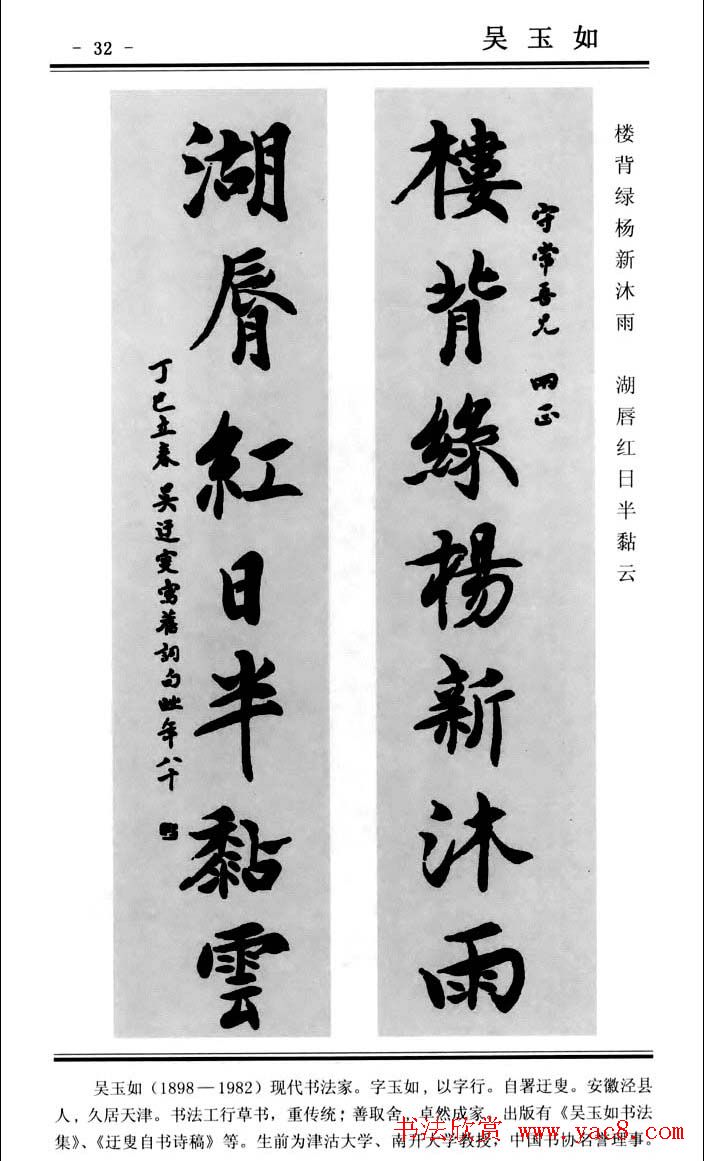 - 32 -
吴玉如
楼背绿杨新沐雨 湖唇红日半黏云
樓背綠楊新沐雨
守常吾兄 两正
湖脣紅日半黏雲
丁巳立春吴迂叟寫舊詞句此年八十
吴玉如(1898—1982)现代书法家。字玉如,以字行。自署迂叟。安徽泾县
人,久居天津。书法工行草书,重传统;善取舍,卓然成家。出版有《吴玉如书法
集》、《迂叟自书诗稿》等。生前为津沽大学、南开大学教授,中国书协名誉理事。
书法欣赏 www.yac8.com